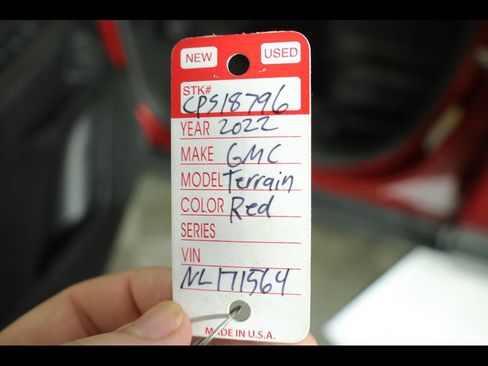 NEW USED
STK#
CPS18796
YEAR 2022
MAKE GMC
MODEL Terrain
COLOR Red
SERIES
VIN
NL171564
MADE IN U.S.A.